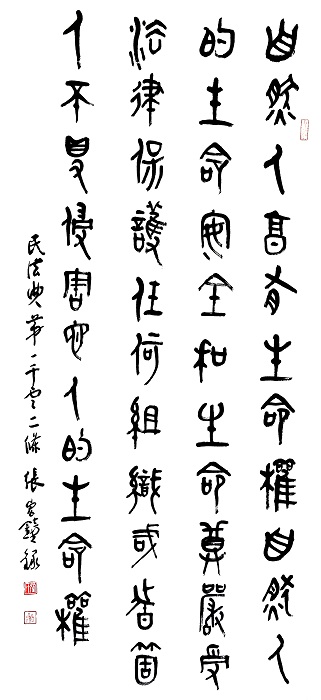 自然人享有生命權自然人
的生命安全和生命尊嚴受
法律保護任何組織或者箇
人不得侵害他人的生命權
民法典第一千零二條 張錄